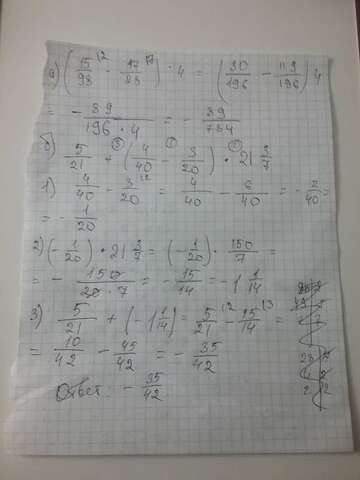 а) (15/98 \2 - 17/28 \7) · 4 = (30/196 - 119/196) 4
= - 89/196 · 4 = - 89/784
б) 5/21 + (4/40 - 3/20) · 21 3/7
1) 4/40 - 3/20 \2 = 4/40 - 6/40 = - 2/40 =
= - 1/20
2) (- 1/20) · 21 3/7 = (- 1/20) · 150/7 =
= - 150/20 · 7 = - 15/14 = - 1 1/14
3) 5/21 + (- 1 1/14) = 5/21 \2 - 15/14 \3 =
= 10/42 - 45/42 = - 35/42
Ответ: - 35/42